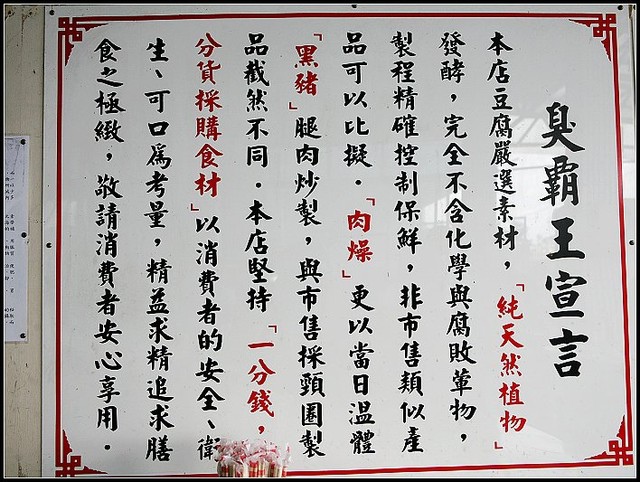 臭霸王宣言
本店豆腐嚴選素材，「純天然植物」
發酵，完全不含化學與腐敗葷物，
製程精確控制保鮮，非市售類似產
品可以比擬．「肉燥」更以當日溫體
「黑豬」腿肉炒製，與市售採頸圈製
品截然不同．本店堅持「一分錢，
分貨採購食材」以消費者的安全、衛
生、可口為考量，精益求精追求膳
食之極緻，敬請消費者安心享用．